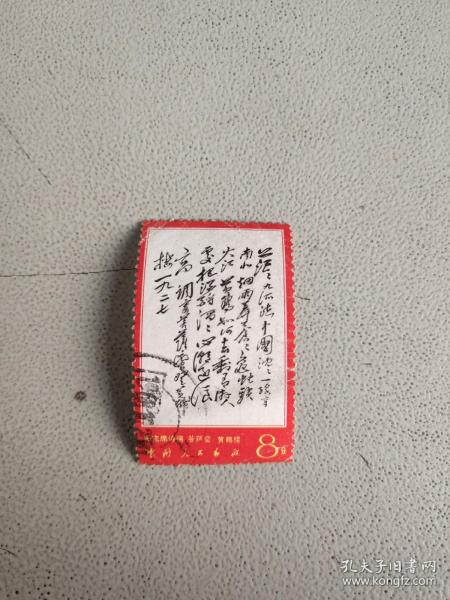 茫〻九派流中國沈〻一线穿
南北烟雨莽苍〻龟蛇锁
大江黄鹤知何去剩有游人
处把酒酹滔〻心潮逐浪
高 调寄菩萨蛮登黄鹤
楼 一九二七
毛主席诗词 菩萨蛮 黄鹤楼
中国人民邮政
8分
孔夫子旧书网
www.kongfz.com